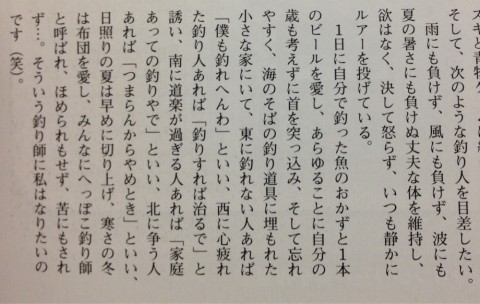 スキと青物
そして、次のような釣り人を目差したい。
雨にも負けず、風にも負けず、波にも
夏の暑さにも負けぬ丈夫な体を維持し、
欲はなく、決して怒らず、いつも静かに
ルアーを投げている。
1日に自分で釣った魚のおかずと1本
のビールを愛し、あらゆることに自分の
歳も考えずに首を突っ込み、そして忘れ
やすく、海のそばの釣り道具に埋もれた
小さな家にいて、東に釣れない人あれば
「僕も釣れへんわ」といい、西に心疲れ
た釣り人あれば「釣りすれば治るで」と
誘い、南に道楽が過ぎる人あれば「家庭
あっての釣りやで」といい、北に争う人
あれば「つまらんからやめとき」といい、
日照りの夏は早めに切り上げ、寒さの冬
は布団を愛し、みんなにへっぽこ釣り師
と呼ばれ、ほめられもせず、苦にもされ
ず…。そういう釣り師に私はなりたいの
です（笑）。